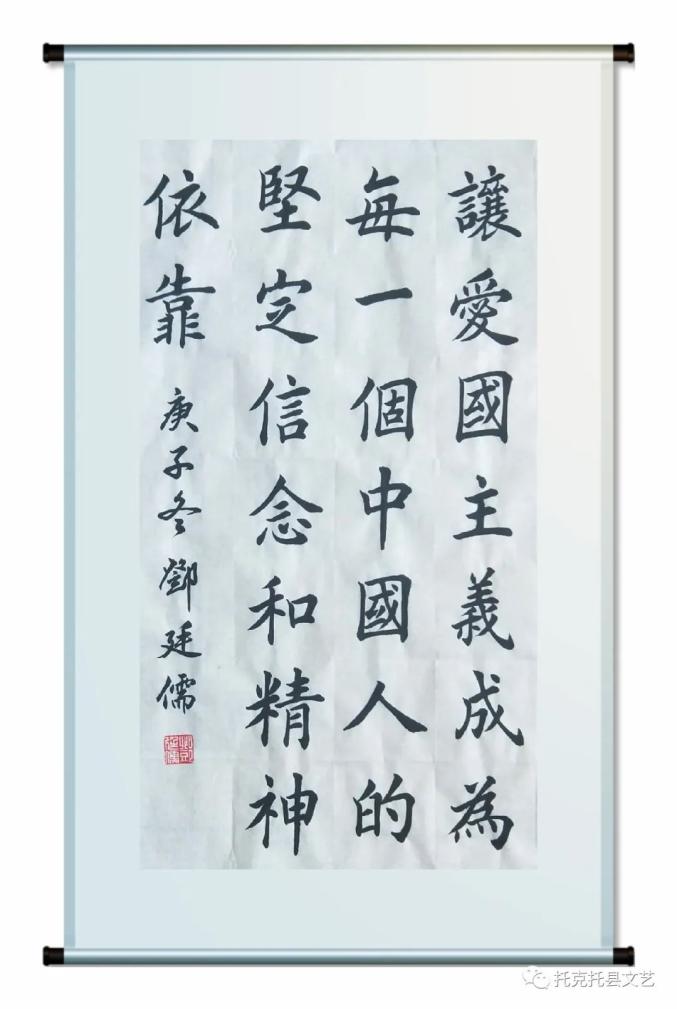 讓愛國主義成為
每一個中國人的
堅定信念和精神
依靠
庚子冬鄧廷儒
托克托县文艺